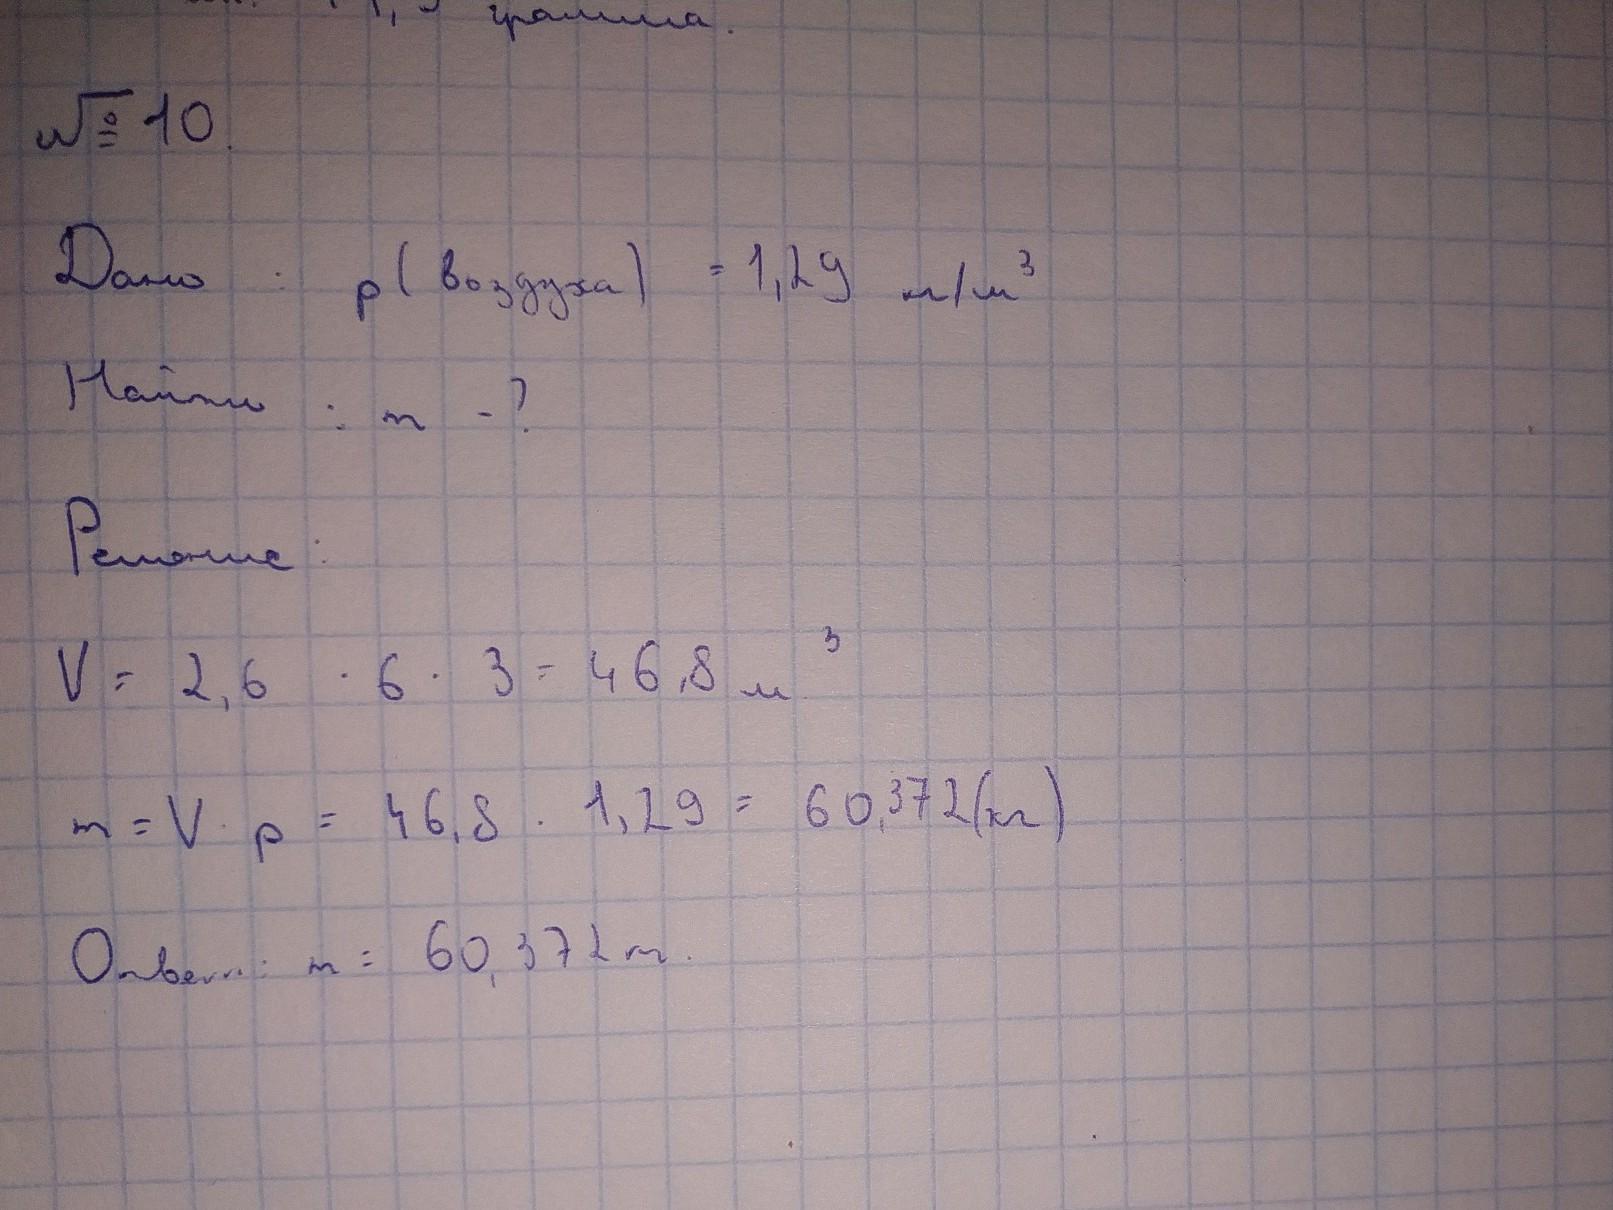 грамма.
№ 10.
Дано : p( воздуха) = 1,29 кг/м³
Найти : m - ?
Решение:
V = 2,6 · 6 · 3 = 46,8 м³
m = V · p = 46,8 · 1,29 = 60,372(кг)
Ответ: m = 60,372 кг.